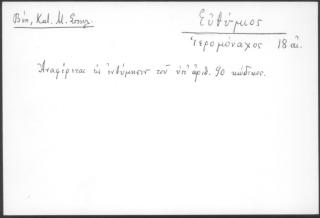 Βέη, Κατ. Μ. Σουμ.
Εὐθύμιος
Ἱερομόναχος 18 αἰ.
Ἀναφέρεται ὡς ἐνθύμησιν τοῦ ὑπ' ἀριθ. 90 κώδικος.